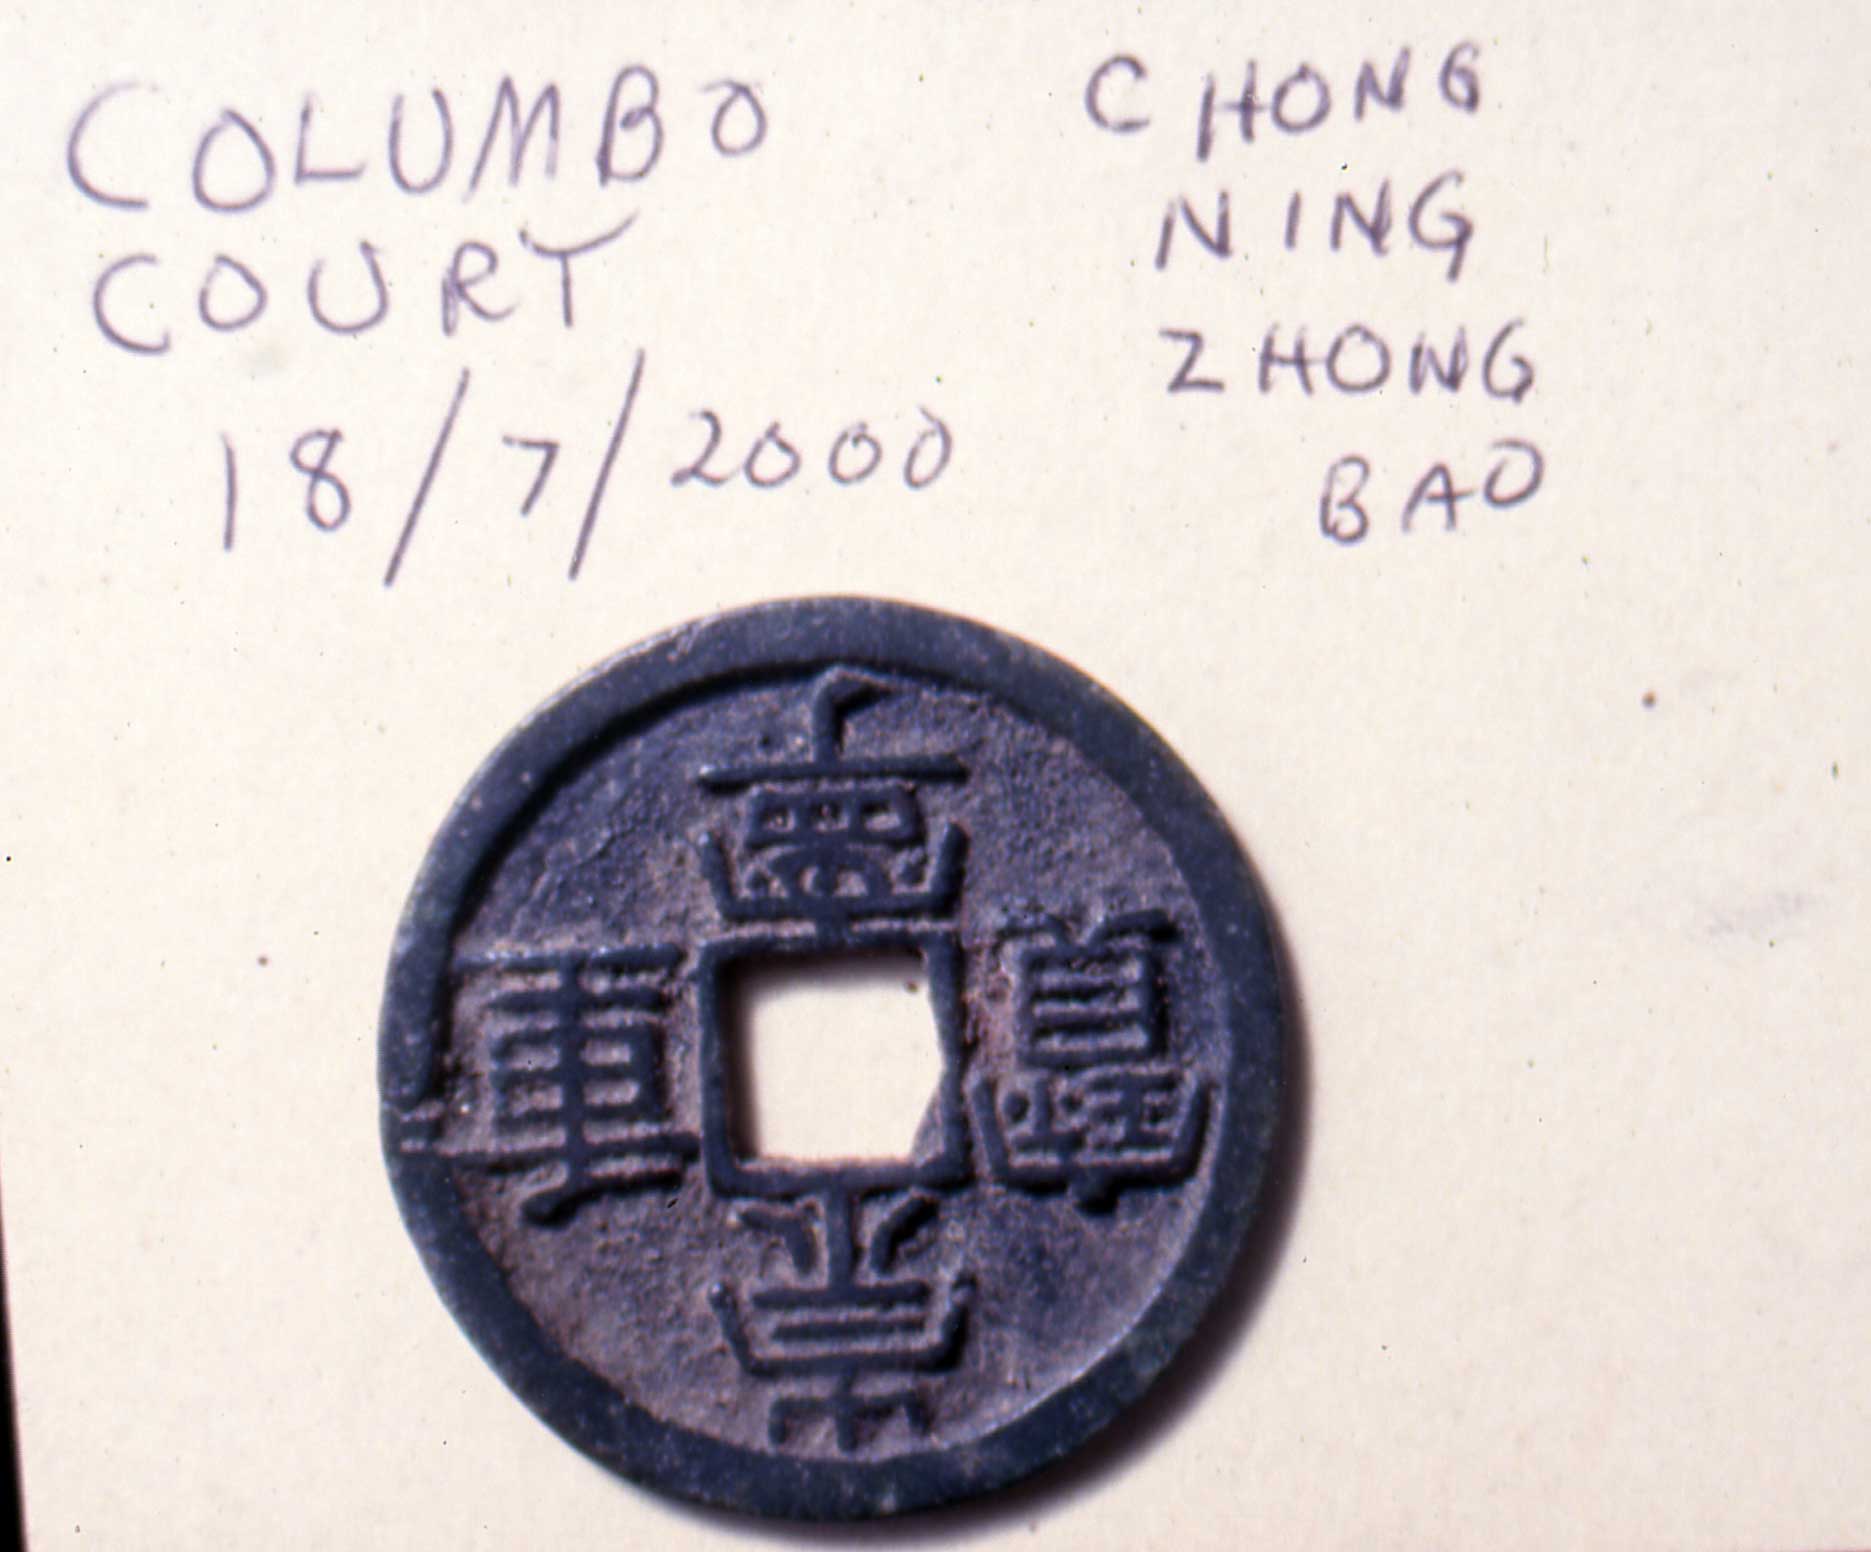 COLUMBO
COURT
18/7/2000
CHONG
NING
ZHONG
BAO
崇寧重寶